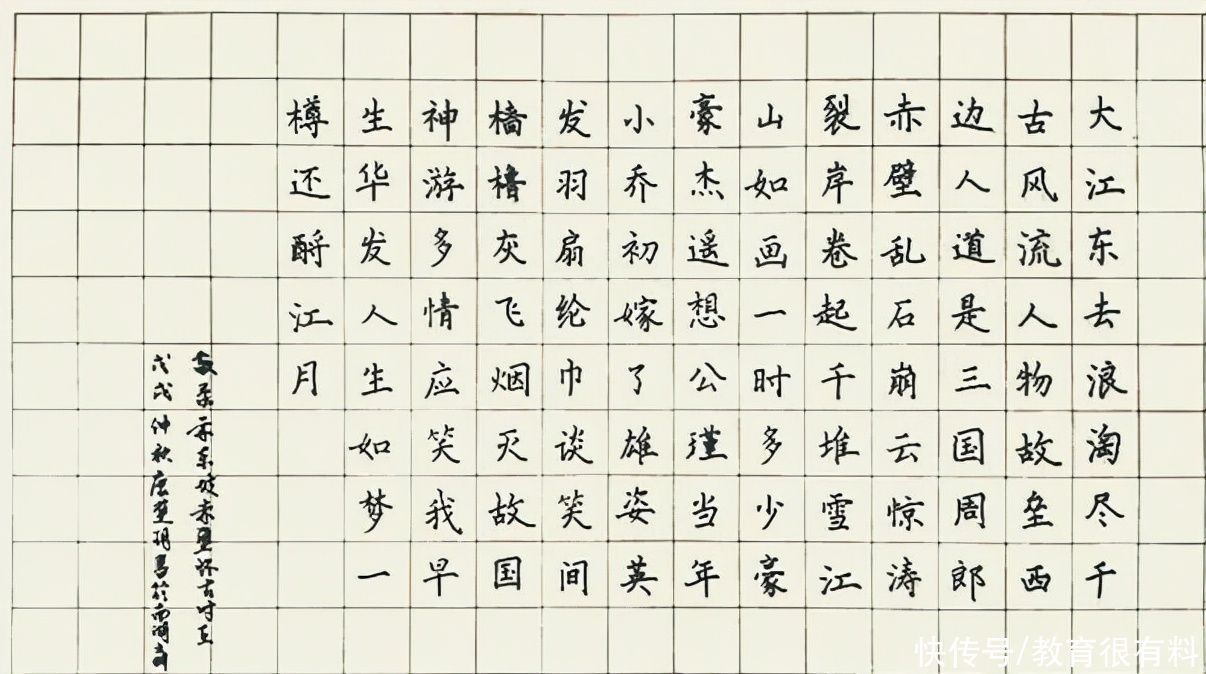 大江东去浪淘尽千
古风流人物故垒西
边人道是三国周郎
赤壁乱石崩云惊涛
裂岸卷起千堆雪江
山如画一时多少豪
豪杰遥想公瑾当年
小乔初嫁了雄姿英
发羽扇纶巾谈笑间
樯橹灰飞烟灭故国
神游多情应笑我早
生华发人生如梦一
樽还酹江月
东坡赤壁怀古
戊戌仲秋
快传号/教育很有料